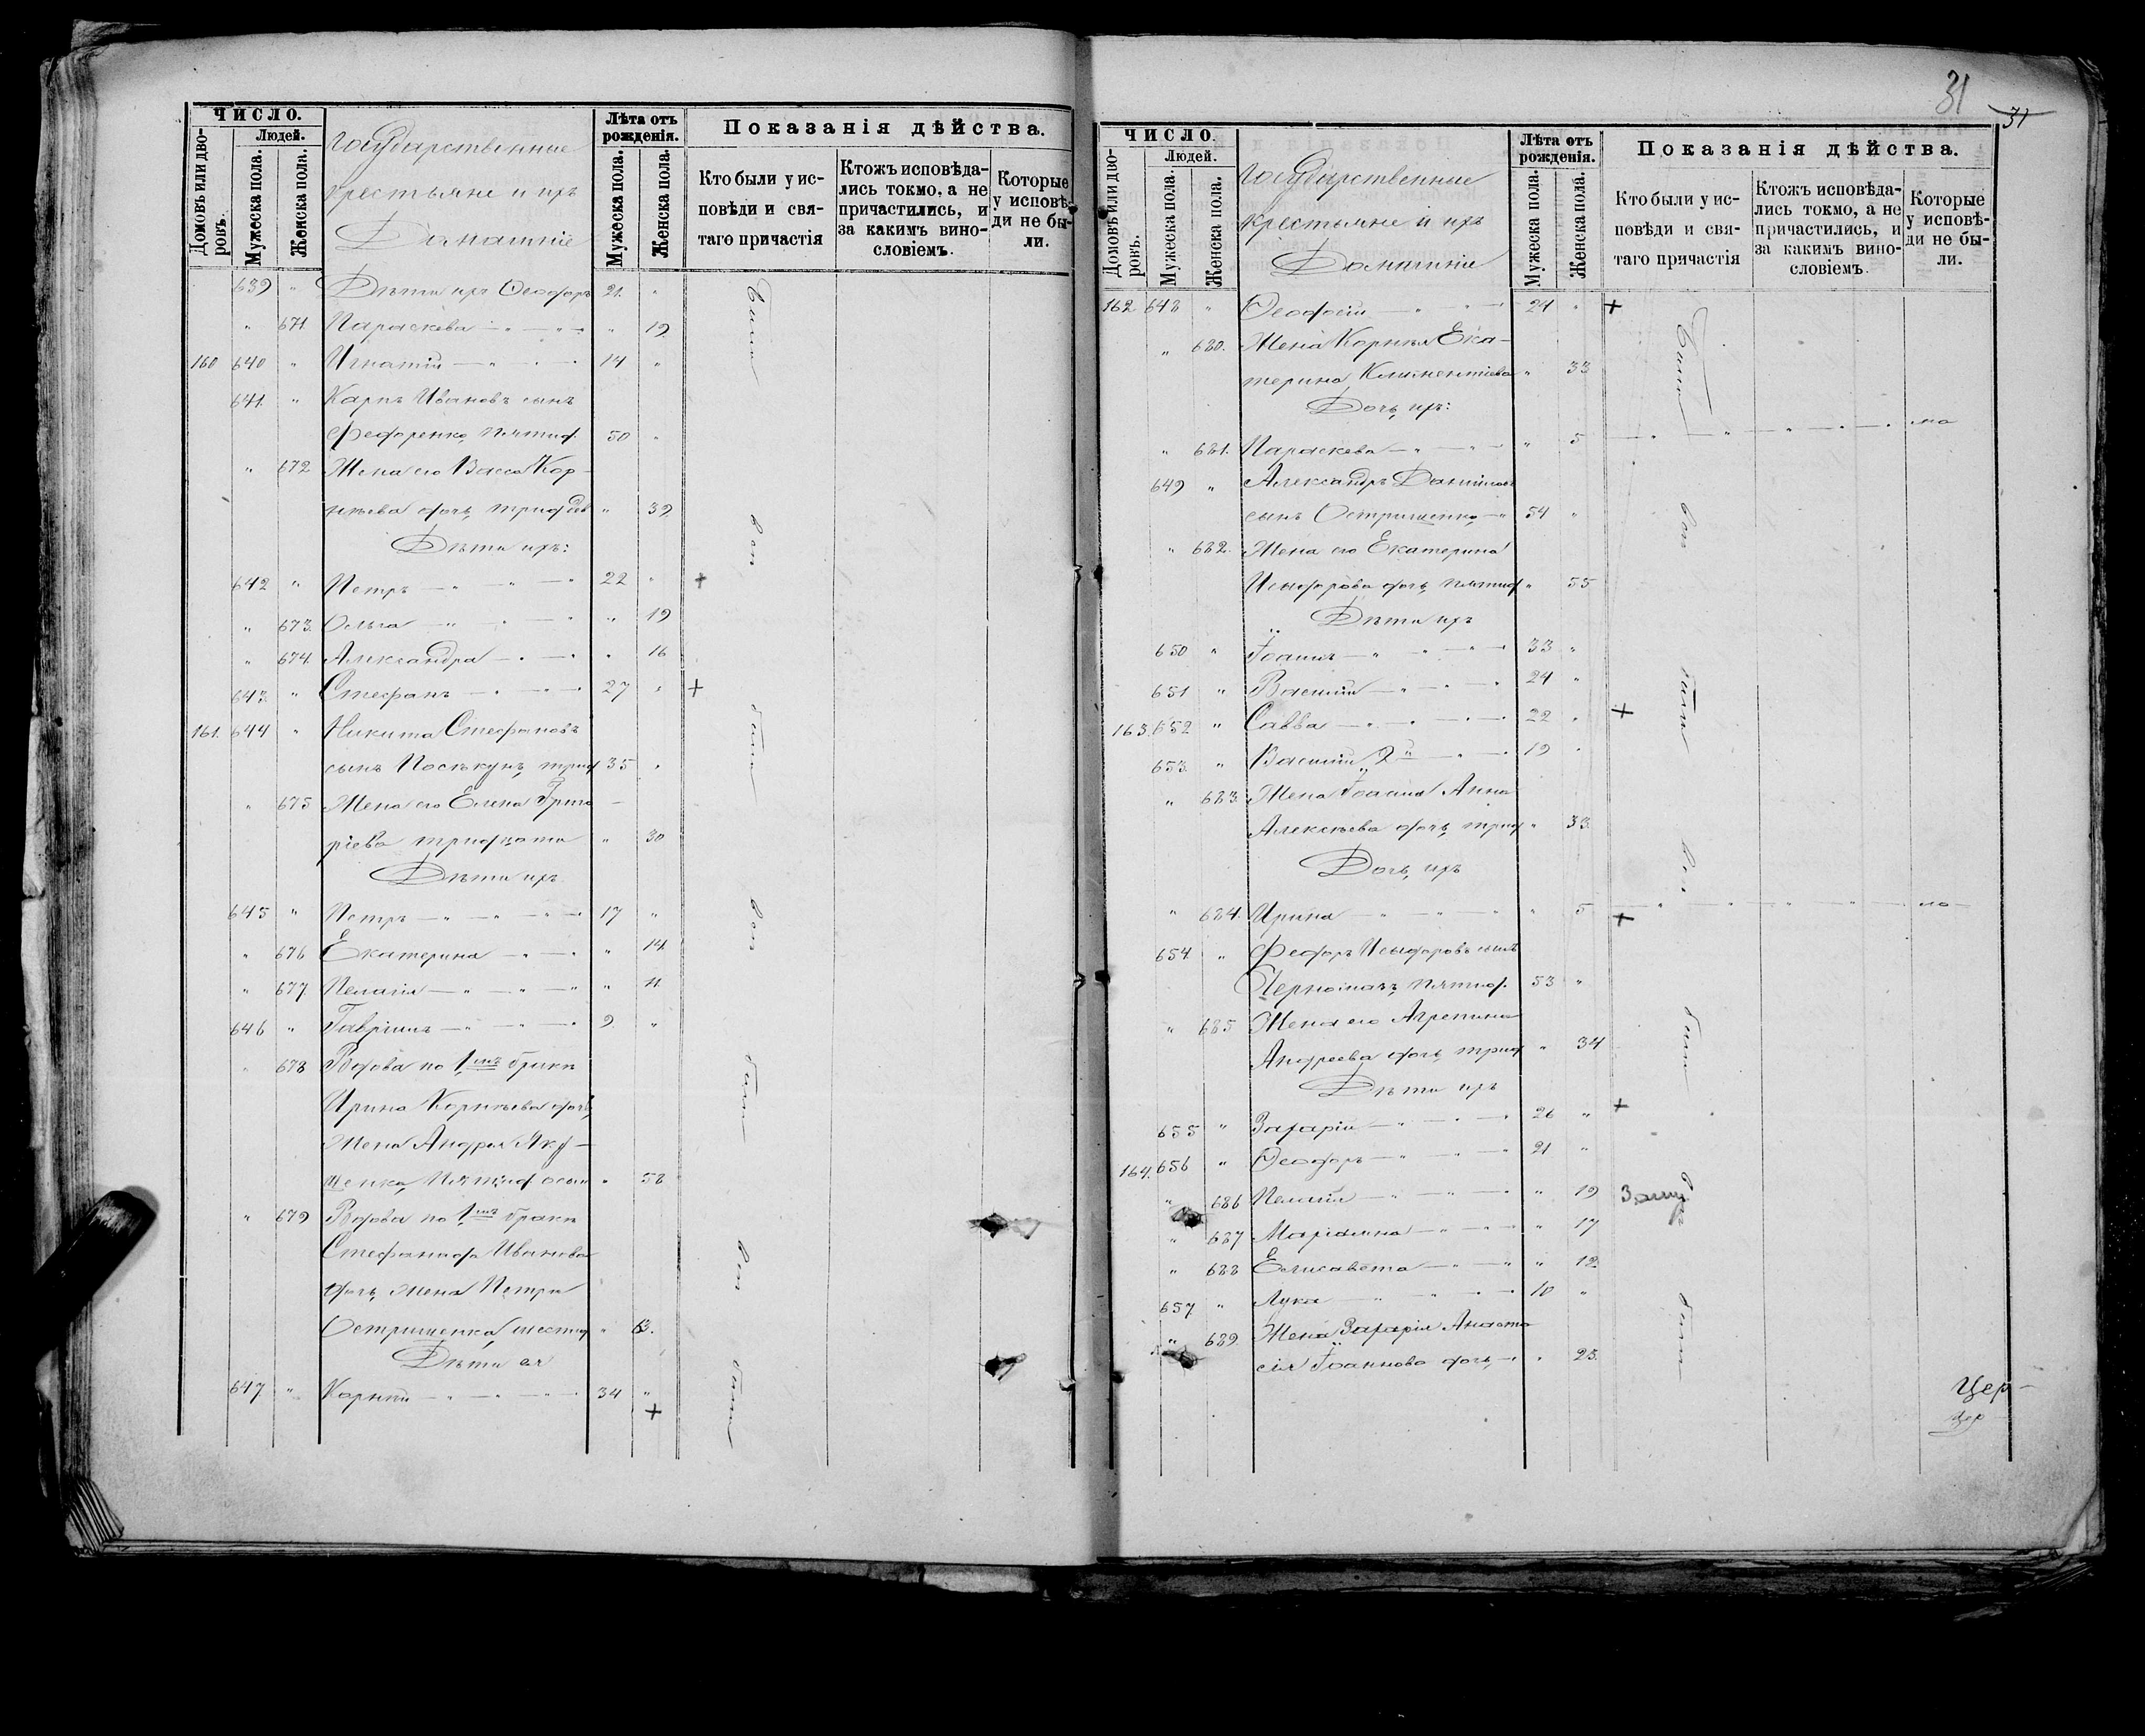 ЧИСЛО.
Домовъ или дворовъ.
Людей.
Мужеска пола.
Женска пола.
Государственные
крестьяне и ихъ
Домашніе
Лѣта отъ рожденія.
Мужеска пола.
Женска пола.
Показанія дѣйства.
Кто были у исповѣди и святаго причастія
Ктожъ исповѣдались токмо, а не причастились, и за какимъ винословіемъ.
Которые у исповѣди не были.
639 " Дѣти ихъ Ѳеодоръ 21 "
" 671 Параскева " 19
160 640 " Игнатій 14 "
641 " Карпъ Ивановъ сынъ
Федоренко, пятид. 50 "
" 672 Жена его Васса Кор-
нѣева дочь, тридев " 39
Дѣти ихъ:
642 " Петръ 22 " +
" 673 Ольга " 19
" 674 Александра " 16
643 " Стефанъ 27 " +
161 644 " Никита Стефановъ
сынъ Посѣкунъ, трид 35 "
" 675 Жена его Елена Григо-
ріева тридцати " 30
Дѣти ихъ
645 " Петръ 17 "
" 676 Екатерина " 14
" 677 Пелагія " 11
646 " Гавріилъ 9 "
" 678 Вдова по 1мъ бракѣ
Ирина Корнѣева дочь,
Жена Андрея Яку-
щенка, Пятид осьм " 58
" 679 Вдова по 1мъ бракѣ
Стефанида Иванова
дочь, жена Петра
Острищенка, шестид " 63.
Дѣти ея
647 " Корнѣй 34 "
+
Были
вси
были
вси
были
вси
были
31
31
ЧИСЛО.
Домовъ или дворовъ.
Людей.
Мужеска пола.
Женска пола.
Государственные
Крестьяне и ихъ
Домашніе
Лѣта отъ рожденія.
Мужеска пола.
Женска пола.
Показанія дѣйства.
Кто были у исповѣди и святаго причастія
Ктожъ исповѣдались токмо, а не причастились, и за какимъ винословіемъ.
Которые у исповѣди не были.
162 648 " Ѳеодосій 24 " +
" 680. Жена Корнѣя Ека-
терина Климентіева " 33
Дочь, ихъ:
" 681. Параскева " 5
649 " Александръ Даниловъ
сынъ Острищенко 54 "
" 682. Жена его Екатерина
дочь, пятид " 55
Дѣти ихъ
650 " Іоаннъ 33 "
651 " Василій 24 "
163. 652 " Савва 22 " +
653 " Василій 2й 19 "
" 683 Жена Іоанна Анна
Алексѣева дочь, трид " 33
Дочь, ихъ
" 684. Ирина " 5 +
654 " Федоръ сынъ
пятид. 53 "
" 685 Жена его Агрепина
Андреева дочь, трид " 34
Дѣти ихъ
655 " Захарій 26 " +
164. 656 " Ѳеодоръ 21 "
" 686 Пелагія " 19
" 687 Маріамна " 17
" 688 Елисавета " 12
657 " Лука 10 "
" 689 Жена Захарія Анаста
сія Іоаннова дочь " 25.
Были
вси
были
вси
были
вси
были
Цер-
Цер